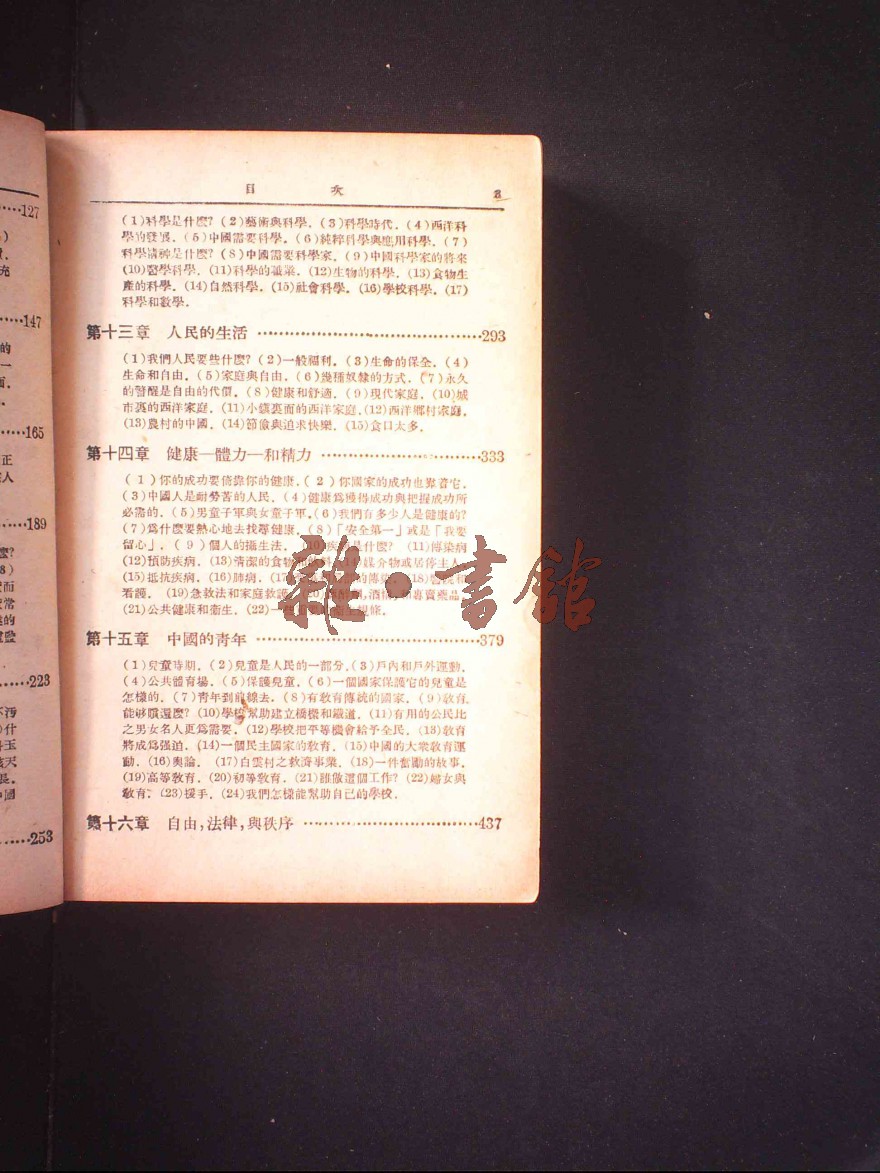 目 次 3
(1)科學是什麼?(2)藝術與科學.(3)科學時代.(4)西洋科
學的發展.(5)中國需要科學.(6)純粹科學與應用科學.(7)
科學精神是什麼?(8)中國需要科學家.(9)中國科學家的將來
(10)醫學科學.(11)科學的職業.(12)生物的科學.(13)食物生
產的科學.(14)自然科學.(15)社會科學.(16)學校科學.(17)
科學和數學.
第十三章 人民的生活 ……………293
(1)我們人民要些什麼?(2)一般福利.(3)生命的保全.(4)
生命和自由.(5)家庭與自由.(6)幾種奴隸的方式.(7)永久
的警醒是自由的代價.(8)健康和舒適.(9)現代家庭.(10)城
市裏的西洋家庭.(11)小鎮裏面的西洋家庭.(12)西洋鄉村家庭.
(13)農村的中國.(14)節儉與追求快樂.(15)食口太多.
第十四章 健康—體力—和精力 ……………333
(1)你的成功要倚靠你的健康.(2)你國家的成功也靠着它.
(3)中國人是耐勞苦的人民.(4)健康爲獲得成功與把握成功所
必需的.(5)男童子軍與女童子軍.(6)我們有多少人是健康的?
(7)爲什麼要熱心地去找尋健康.(8)「安全第一」或是「我要
留心」.(9)個人的攝生法.(10)疾病是什麼?(11)傳染病
(12)預防疾病.(13)清潔的食物和飲料.(14)媒介物或居停主人
(15)抵抗疾病.(16)肺病.(17) 的傳染 (18)醫院和
看護.(19)急救法和家庭救護.(20) 酒 和專賣藥品.
(21)公共健康和衞生.(22) 規條.
第十五章 中國的靑年 ……………379
(1)兒童時期.(2)兒童是人民的一部分.(3)戶內和戶外運動.
(4)公共體育場.(5)保護兒童.(6)一個國家保護它的兒童是
怎樣的.(7)靑年到前線去.(8)有敎育傳統的國家.(9)敎育.
能够償還麼?(10)學校幫助建立橋樑和鐵道.(11)有用的公民比
之男女名人更爲需要.(12)學校把平等機會給予全民.(13)敎育
將成爲强迫.(14)一個民主國家的敎育.(15)中國的大衆敎育運
動.(16)輿論.(17)白雲村之救濟事業.(18)一件奮勵的故事.
(19)高等敎育.(20)初等敎育.(21)誰做這個工作?(22)婦女與
敎育.(23)援手.(24)我們怎樣能幫助自己的學校.
第十六章 自由,法律,與秩序 ……………437
127
147
165
189
223
253
雜·書館